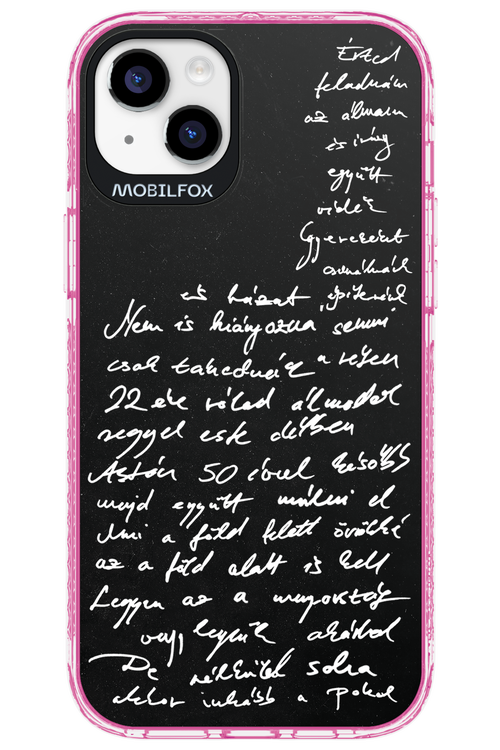 MOBILFOX
Érted
feladnám
az álmaim
és így
együtt
Gyerekeket
csinálnánk
és házat építenénk
Nem is hiányozna semmi
csak takednánk a réten
22 éve rólad álmodok
reggel este délben
Aztán 50 évvel később
majd együtt múlni el
Ami a föld felett örökké
az a föld alatt is kell
Legyen az a mennyország
vagy legyünk akárhol
De nélküled soha
akkor inkább a Pokol